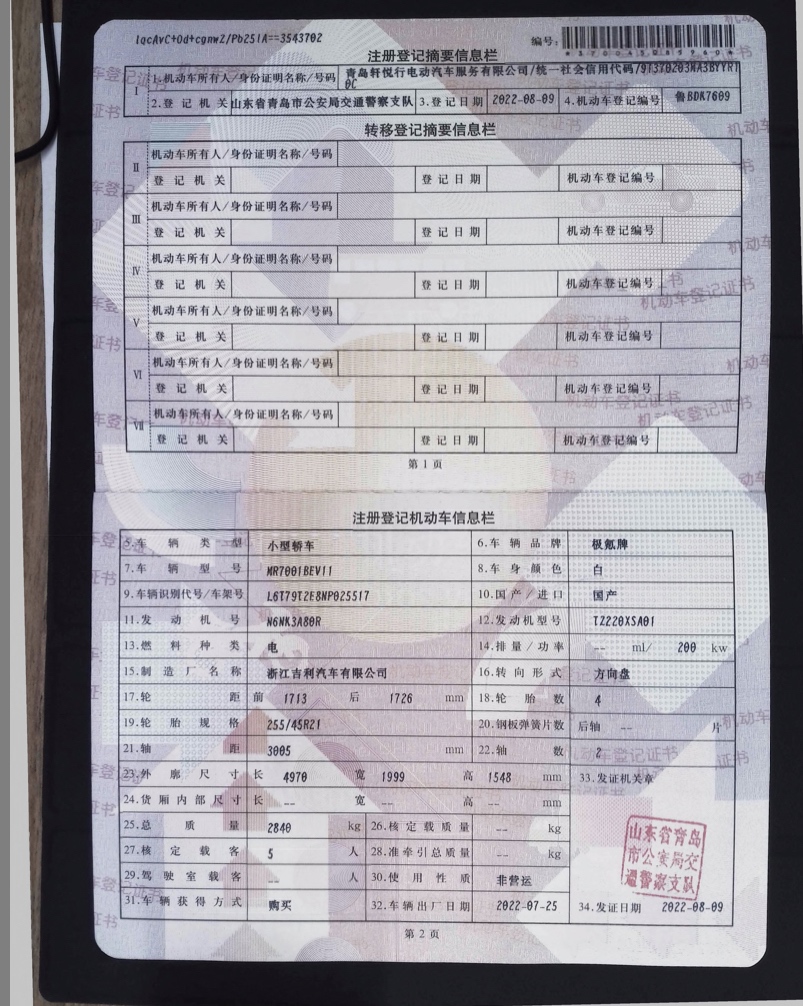 1qcAvC+Od+cgnwZ/Pb251A==3543702
编号:
*370045085960*
注册登记摘要信息栏
I 1.机动车所有人/身份证明名称/号码 青岛轩悦行电动汽车服务有限公司/统一社会信用代码/91370203MA3BYYR10C
2.登记机关 山东省青岛市公安局交通警察支队 3.登记日期 2022-08-09 4.机动车登记编号 鲁BDK7609
转移登记摘要信息栏
II 机动车所有人/身份证明名称/号码
登记机关 登记日期 机动车登记编号
III 机动车所有人/身份证明名称/号码
登记机关 登记日期 机动车登记编号
IV 机动车所有人/身份证明名称/号码
登记机关 登记日期 机动车登记编号
V 机动车所有人/身份证明名称/号码
登记机关 登记日期 机动车登记编号
VI 机动车所有人/身份证明名称/号码
登记机关 登记日期 机动车登记编号
VII 机动车所有人/身份证明名称/号码
登记机关 登记日期 机动车登记编号
第1页
注册登记机动车信息栏
5.车辆类型 小型轿车 6.车辆品牌 极氪牌
7.车辆型号 MR7001BEV11 8.车身颜色 白
9.车辆识别代号/车架号 L6T79T2E8NP025517 10.国产/进口 国产
11.发动机号 N6NK3A80R 12.发动机型号 TZ220XSA01
13.燃料种类 电 14.排量/功率 -- ml/ 200 kw
15.制造厂名称 浙江吉利汽车有限公司 16.转向形式 方向盘
17.轮距 前 1713 后 1726 mm 18.轮胎数 4
19.轮胎规格 255/45R21 20.钢板弹簧片数 后轴 -- 片
21.轴距 3005 mm 22.轴数 2
23.外廓尺寸 长 4970 宽 1999 高 1548 mm 33.发证机关章
24.货厢内部尺寸 长 -- 宽 -- 高 -- mm
25.总质量 2840 kg 26.核定载质量 -- kg
27.核定载客 5 人 28.准牵引总质量 -- kg
29.驾驶室载客 -- 人 30.使用性质 非营运
31.车辆获得方式 购买 32.车辆出厂日期 2022-07-25 34.发证日期 2022-08-09
山东省青岛
市公安局交
通警察支队
第2页